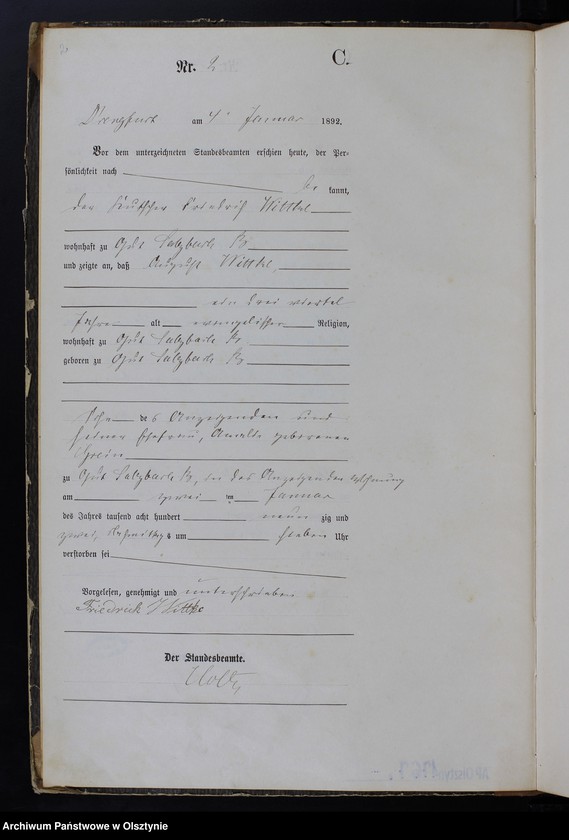 Nr. 2
C.
am 4 Januar 1892.
Vor dem unterzeichneten Standesbeamten erschien heute, der Per-
sönlichkeit nach
be kannt,
der Kutscher Friedrich Wittke
wohnhaft zu Gut Salzbach
und zeigte an, daß August Wittke,
ein drei viertel
Jahre alt evangelischer Religion,
wohnhaft zu Gut Salzbach
geboren zu Gut Salzbach
Sohn des Anzeigenden und
seiner Ehefrau, geborenen
zu Gut Salzbach in des Anzeigenden Wohnung
am zwei ten Januar
des Jahres tausend acht hundert neun zig und
zwei, Nachmittags um sieben Uhr
verstorben sei
Vorgelesen, genehmigt und unterschrieben
Friedrich Wittke
Der Standesbeamte.
Archiwum Państwowe w Olsztynie